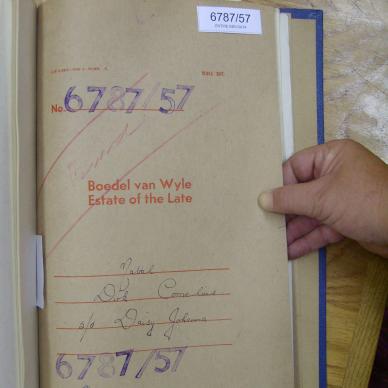 6787/57
No. 6787/57
Boedel van Wyle
Estate of the Late
Nabal
Dirk Cornelius
s/o Daisy Johanna
6787/57